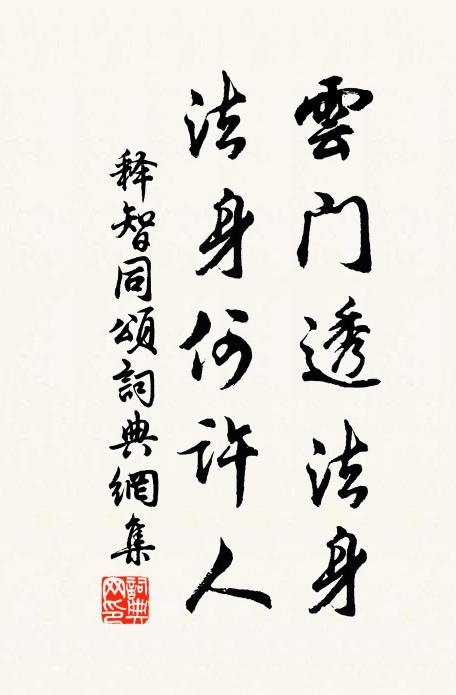 雲門透法身
法身何許人
释智同頌詞典網集
詞典网印